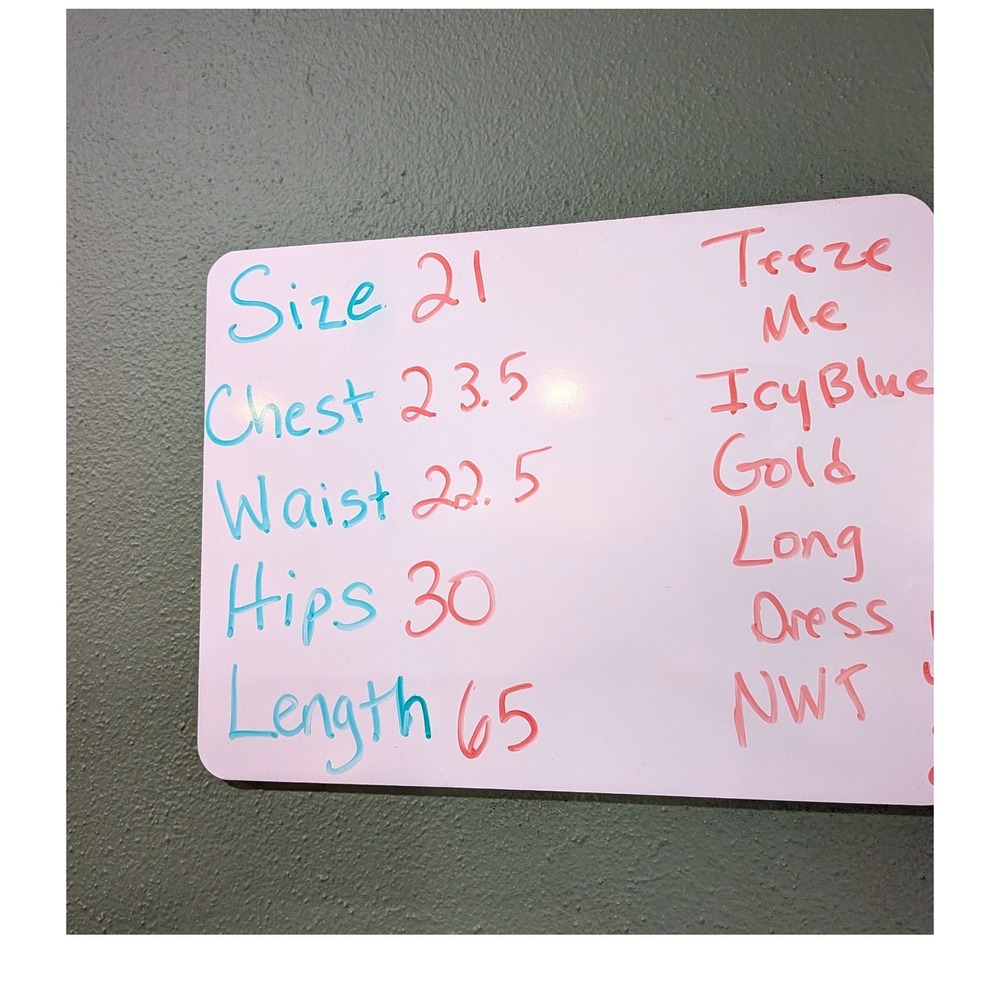 Size 21
Chest 23.5
Waist 22.5
Hips 30
Length 65
Teeze
Me
Icy Blue
Gold
Long
Dress
NWT